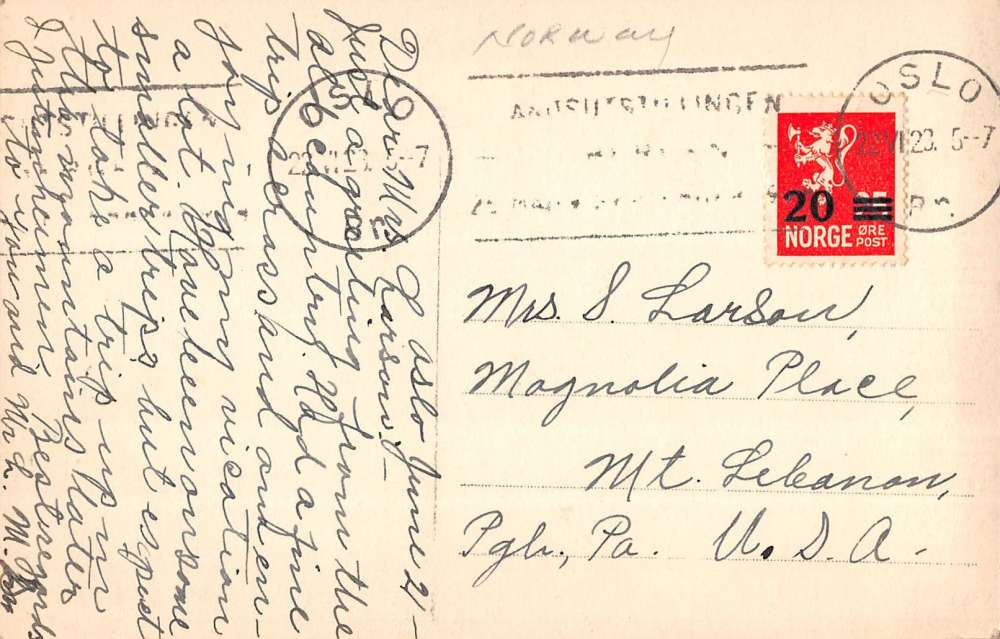 Oslo June 21-
Dear Mrs. Larson:-
Just a greeting from the
old country. Had a fine
trip across and en-
joying my vication
a lot. Have been on some
smaller trips but expect
to take a trip up in
the mountains later
Best regards
to you and Mr L. M.
Norway
OSLO
22 VI 23. 5--7
OSLO
22 VI 23. 5--7
20
NORGE ØRE
POST
Mrs. S. Larson,
Magnolia Place,
Mt. Lebanon,
Pgh, Pa. U. S. A-